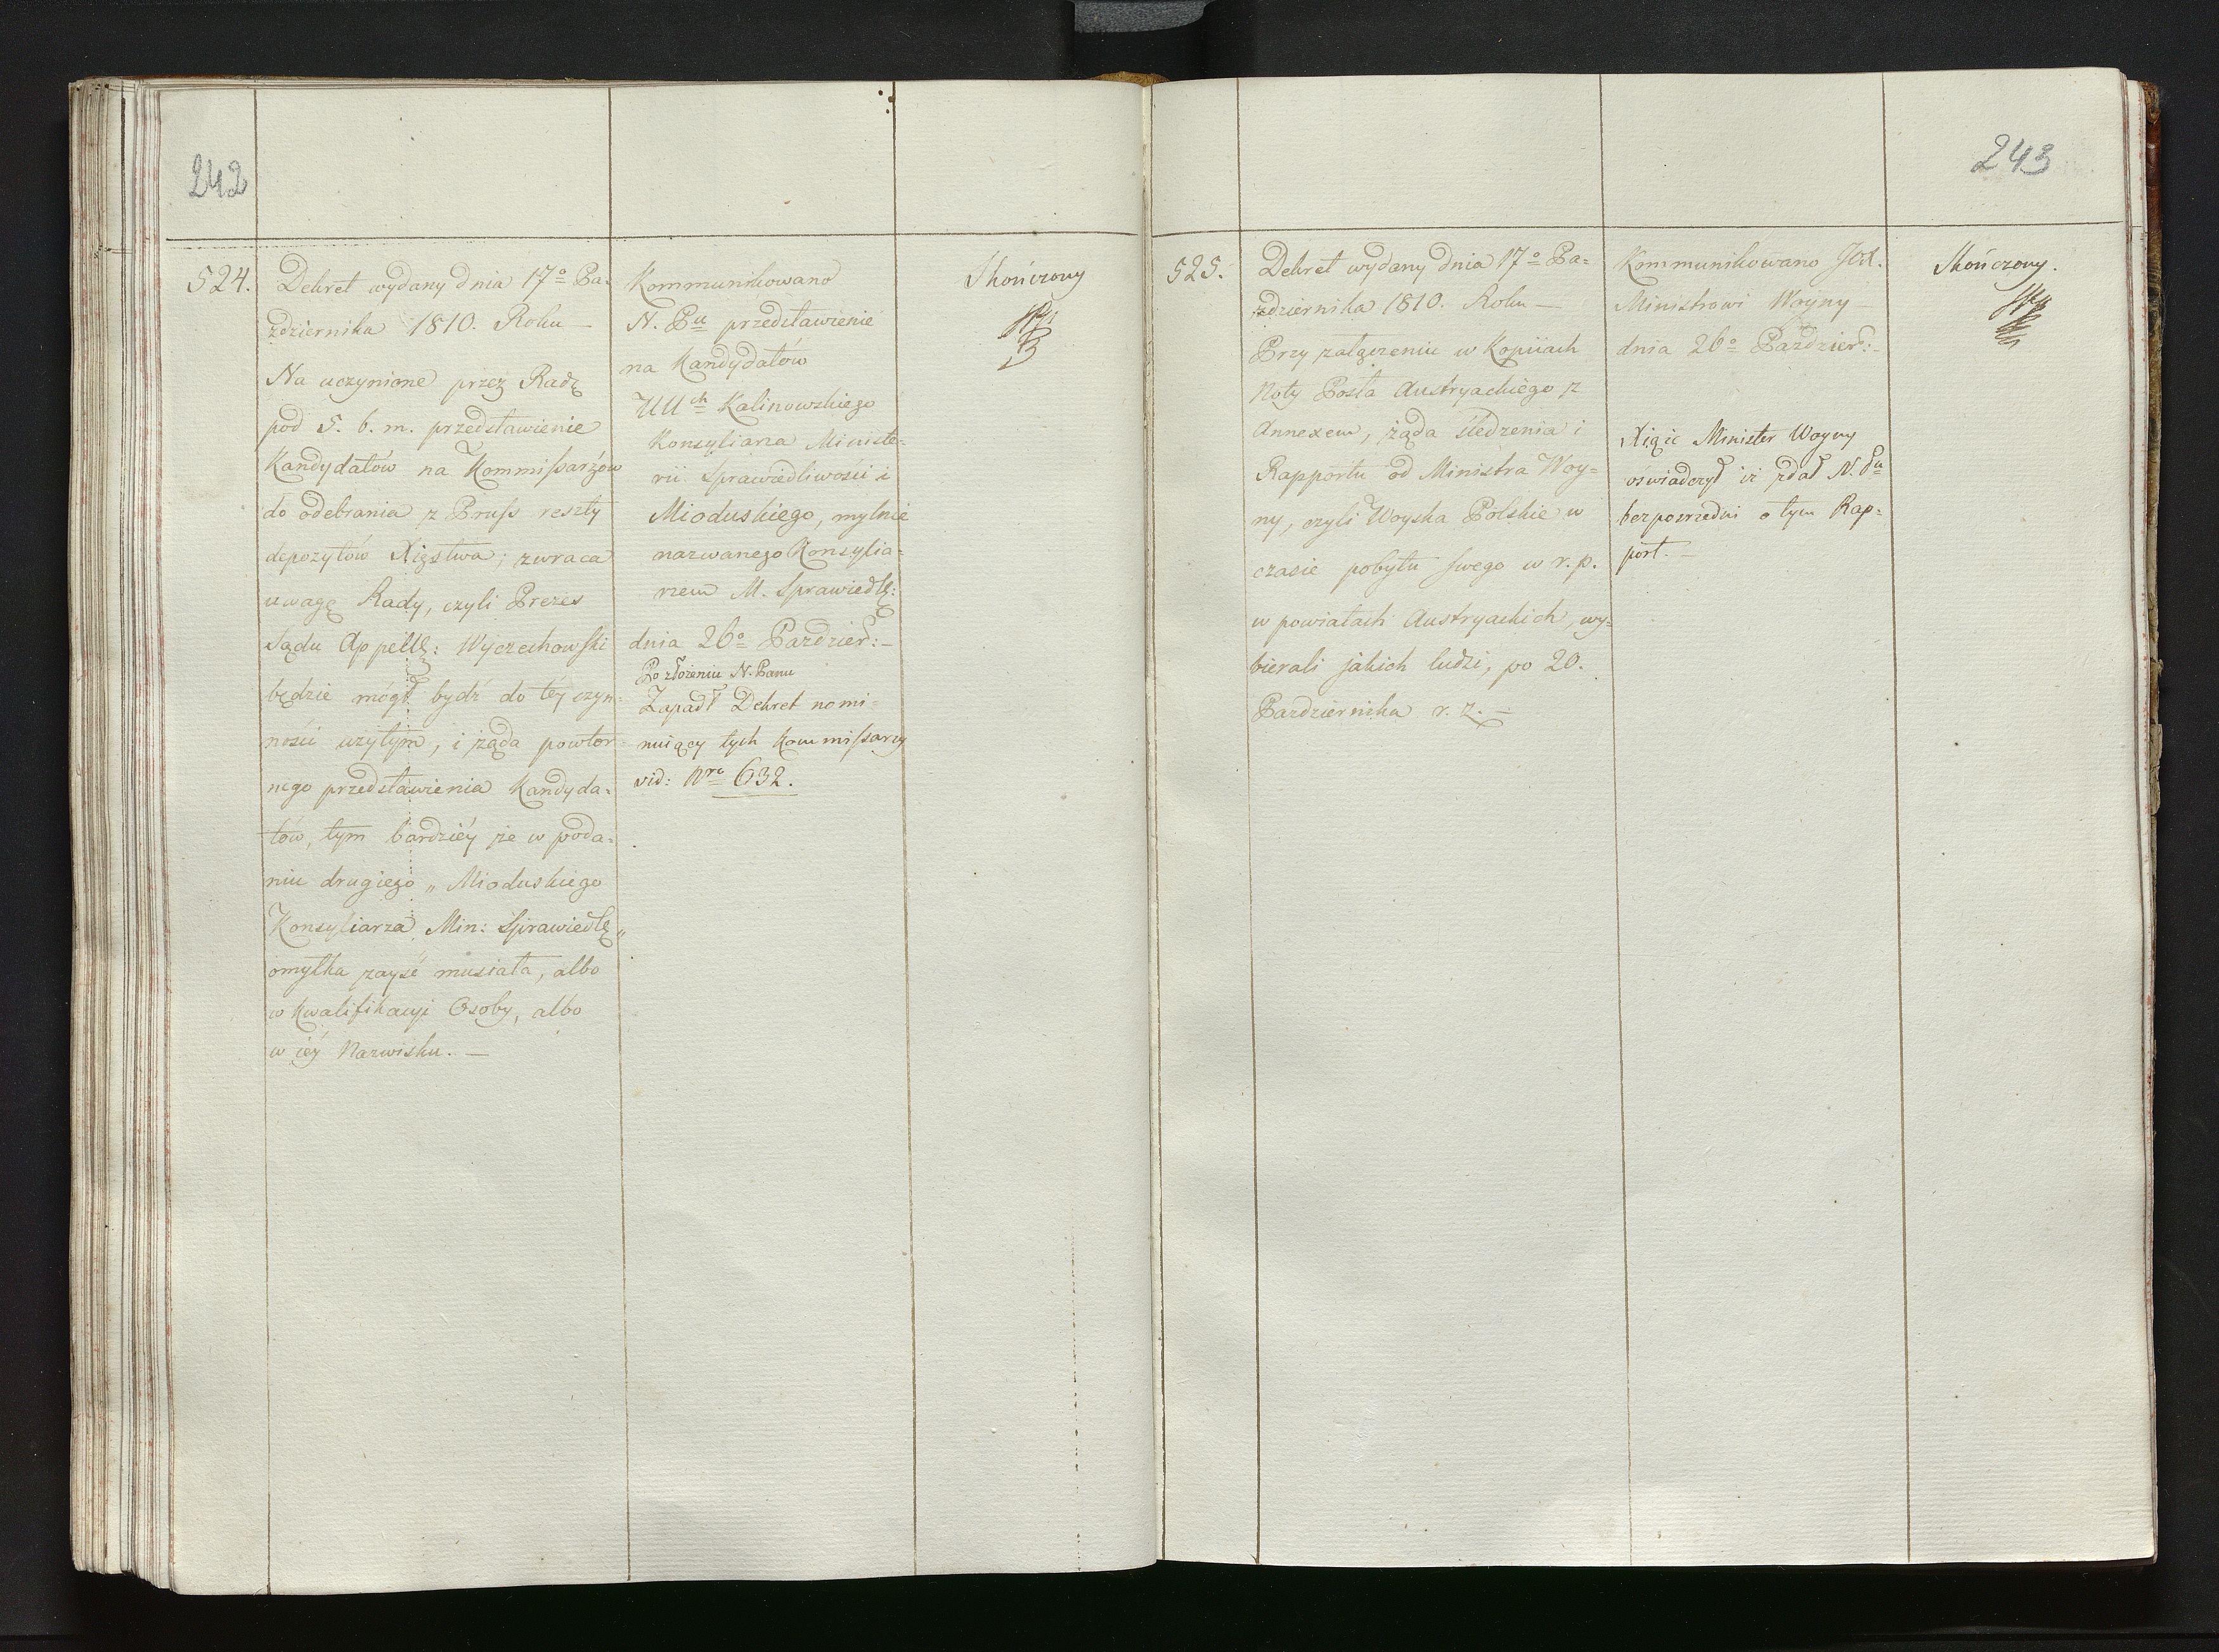 242
524.
Dekret wydany dnia 17º Pa-
zdziernika 1810. Roku —
Na uczynione przez Radę
pod 5. b. m. przedstawienie
Kandydatów na Kommissarzów
do odebrania z Pruss reszty
depozytów Xięstwa; zwraca
uwagę Rady, czyli Prezes
Sądu Appell: Wyczechowski
będzie mógł bydź do téy czyn-
ności użytym, i żąda powtor-
nego przedstawienia Kandyda-
tów, tym bardziéy że w poda-
niu drugiego „Mioduskiego
Konsyliarza Min: Sprawiedl„
omyłka zayść musiała, albo
w kwalifikacyi Osoby, albo
w iéy Nazwisku. —
Kommunikowano
N. Pu przedstawienie
na Kandydatów
UUch Kalinowskiego
Konsyliarza Ministe-
rii Sprawiedliwości i
Mioduskiego, mylnie
nazwanego Konsylia-
rzem M. Sprawiedl:
dnia 26º Pazdzier: —
Po złożeniu N. Panu
Zapadł Dekret nomi-
nuiący tych Kommissarzy
vid: Nro 632.
Skończony
243
525.
Dekret wydany dnia 17º Pa-
zdziernika 1810. Roku —
Przy załączeniu w Kopiiach
Noty Posła Austryackiego z
Annexem, żąda śledzenia i
Rapportu od Ministra Woy-
ny, czyli Woyska Polskie w
czasie pobytu swego w r. p.
w powiatach Austryackich, wy-
bierali jakich ludzi, po 20.
Pazdziernika r. z. —
Kommunikowano JOX.
Ministrowi Woyny —
dnia 26º Pazdzier: —
Xiąże Minister Woyny
oświadczył iż zdał N. Pu
bezpośrzedni o tym Rap-
port. —
Skończony.